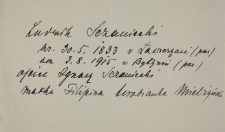 Ludwik Sczaniecki
ur. 30.5. 1833 w Łaszczynie (poz.)
um. 3.8. 1915 w Bytyniu (poz.)
ojciec Ignacy Sczaniecki
matka Filipina hrabianka Mielżyńska